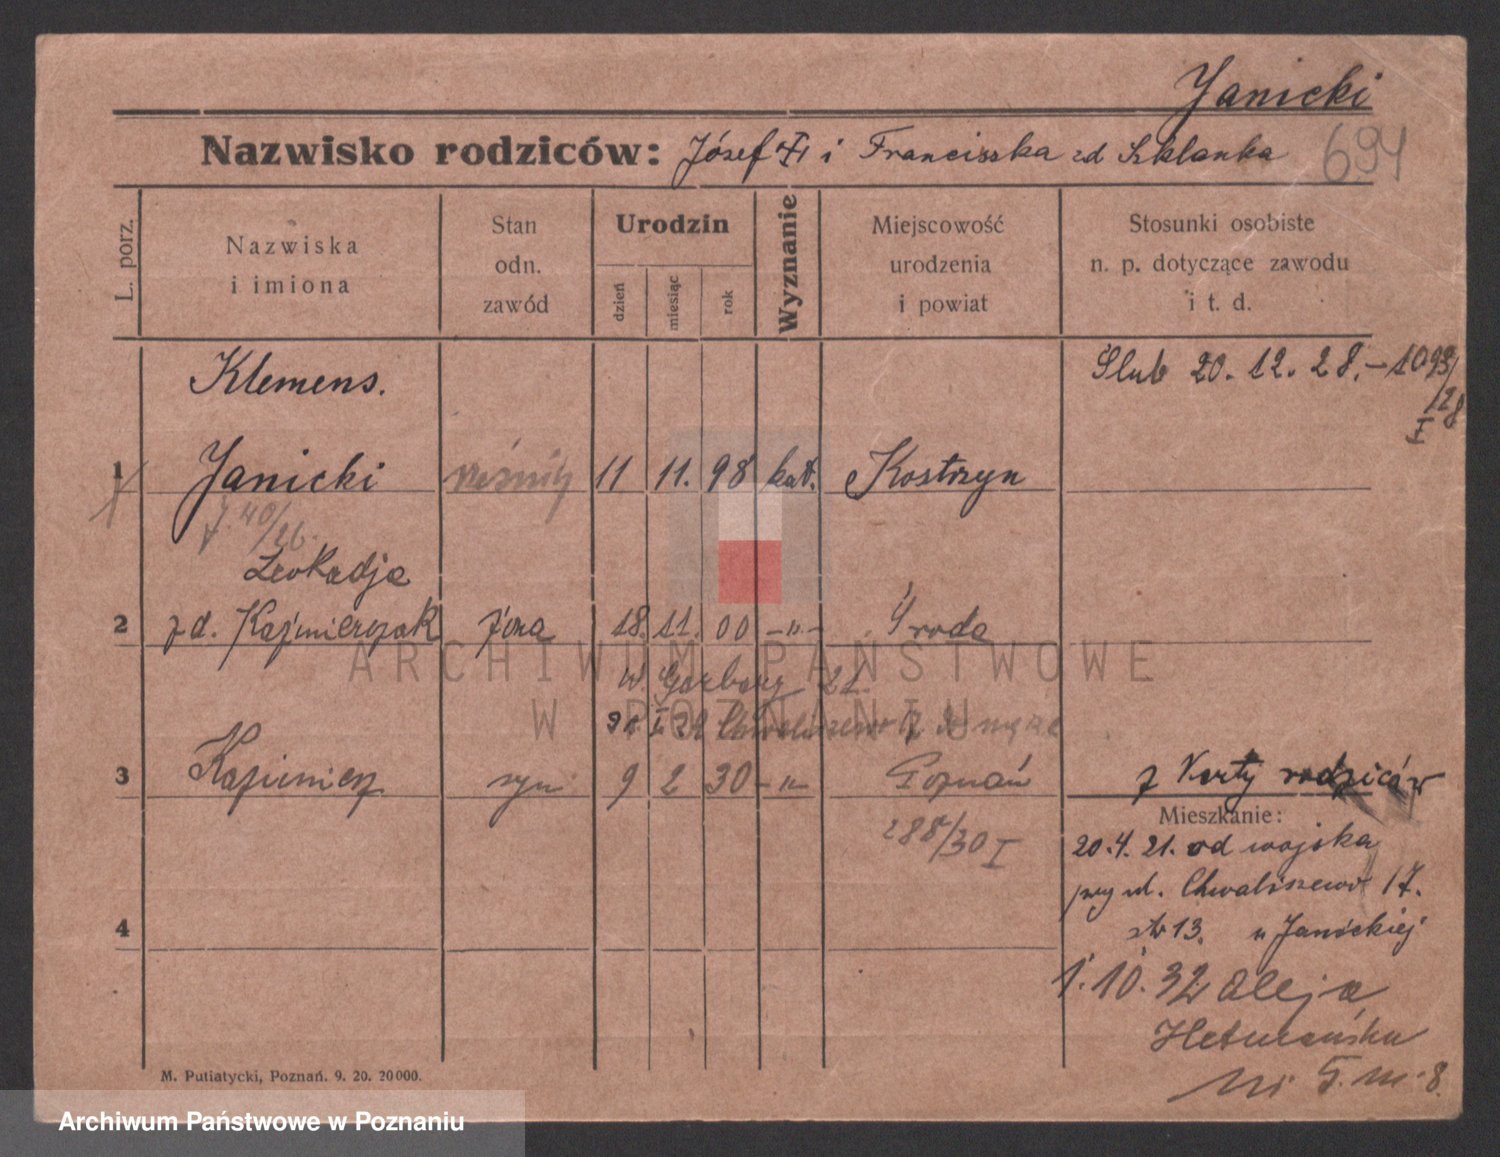 Janicki
694
Nazwisko rodziców: Józef i Franciszka zd Szklanka
L. porz.
Nazwiska i imiona
Stan odn. zawód
Urodzin
dzień
miesiąc
rok
Wyznanie
Miejscowość urodzenia i powiat
Stosunki osobiste n. p. dotyczące zawodu i t. d.
Klemens.
Ślub 20. 12. 28. – 1093/
/28
I
1 Janicki rzeźnik 11 11. 98 kat. Kostrzyn
40/26.
Leokadja
2 zd. Kaźmierczak żona 18. 11. 00 –"– Środa
W. Garbary 21.
Chwaliszewo
3 Kazimierz syn 9 2 30 –"– Poznań
z Karty rodziców
288/30 I
Mieszkanie:
20. 4. 21. od wojska
przy ul. Chwaliszewo 17.
4
str 13. u Janickiej
1. 10. 32 Aleja
Hetmańska
nr 5. m. 8.
M. Putiatycki, Poznań. 9. 20. 20000.
ARCHIWUM PAŃSTWOWE
W POZNANIU
Archiwum Państwowe w Poznaniu